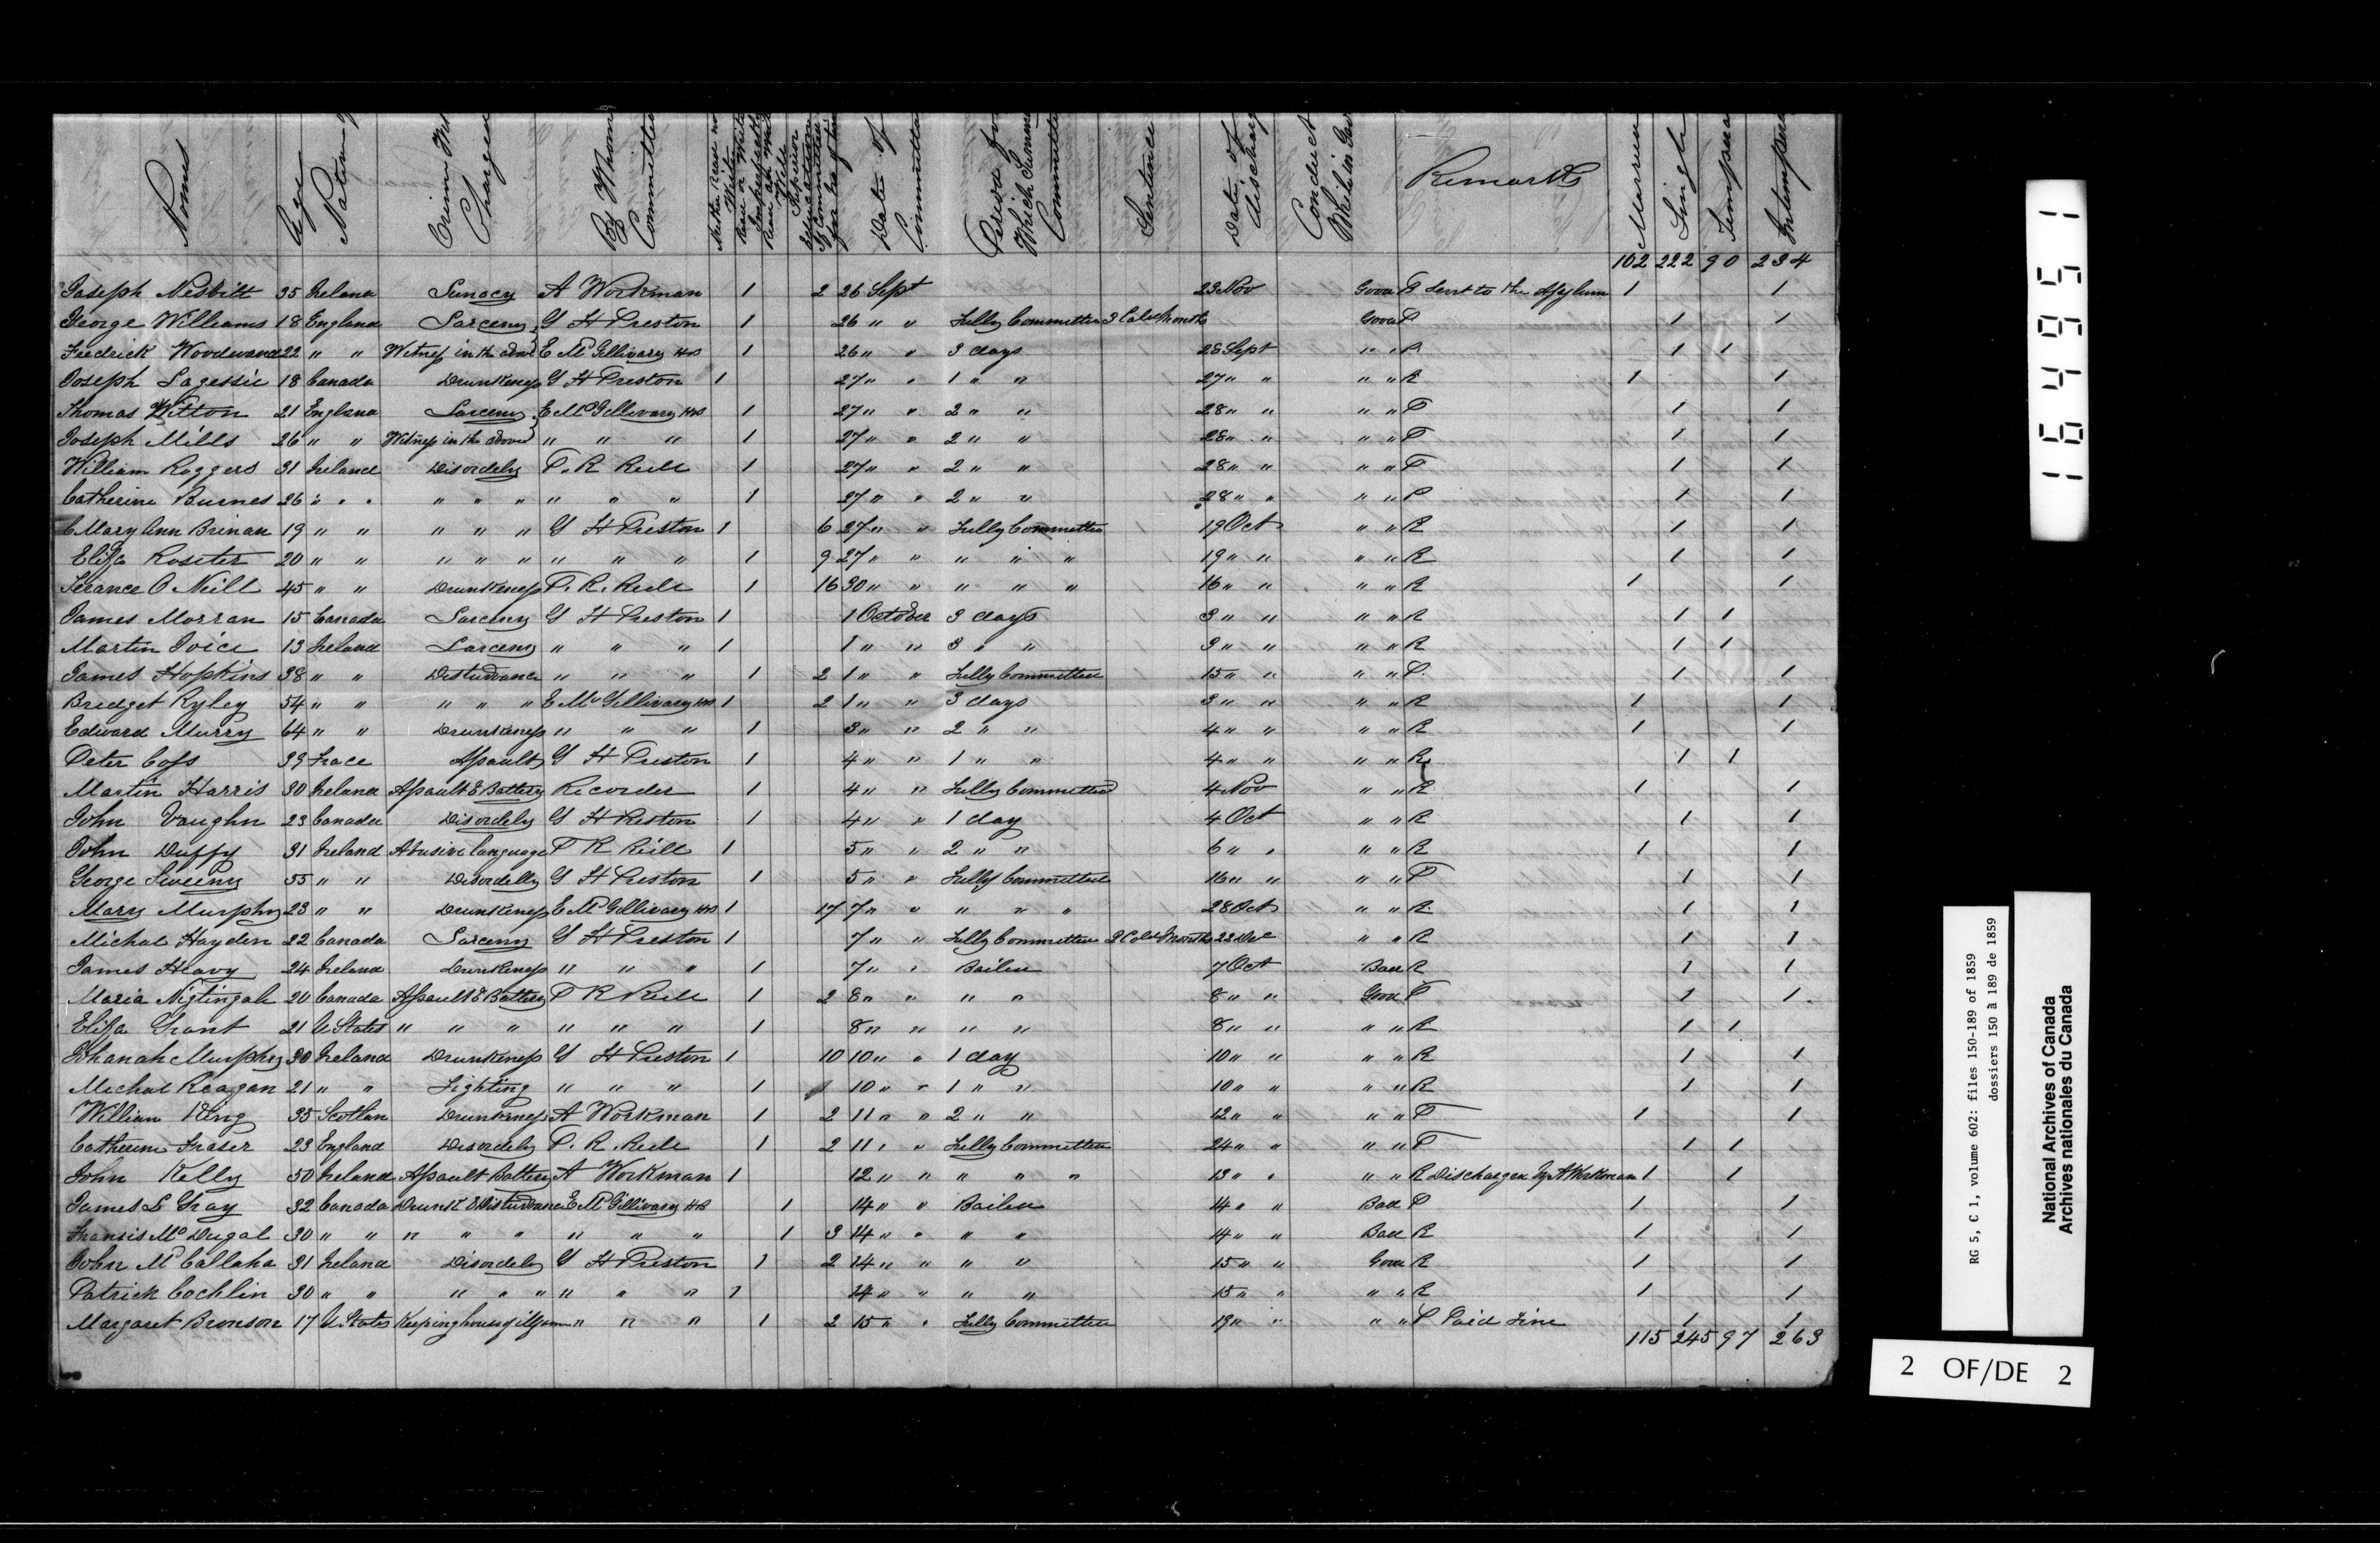 Names Age Nation Crime Charged By Whom Committed Neither Read nor Write Read or Write Imperfectly Read and Write Well Superior Education Date of Committal Period for Which Committed Sentence Date of discharge Conduct While in Remarks Married Single Tempera Intempera
102 222 90 234
Joseph Nesbitt 35 Ireland Lunacy A Workman 1 2 26 Sept 23 Nov Good P Sent to the Asylum 1 1
George Williams 18 England Larceny G H Preston 1 26 " " Fully Committed 3 Cale Months Good P 1 1
Fredrick Woodward 22 " " Witness in the above E McGillivary HS 1 26 " " 3 days 28 Sept " " R 1 1
Joseph Lagessie 18 Canada Drunkeness G H Preston 1 27 " " 1 " " 27 " " " " R 1 1
Thomas Witton 21 England Larceny E McGillivary HS 1 27 " " 2 " " 28 " " " " P 1 1
Joseph Mills 26 " " Witness in the above " " " 1 27 " " 2 " " 28 " " " " P 1 1
William Roggers 31 Ireland Disordely P. R. 1 27 " " 2 " " 28 " " " " P 1 1
Catherine Burnes 26 " " " " " " " " " 1 27 " " 2 " " 28 " " " " P 1 1
Mary Ann Brinan 19 " " " " " G H Preston 1 6 27 " " Fully Committed 19 Oct " " R 1 1
Eliza Rositer 20 " " " " " " " " 1 9 27 " " " " " 19 " " " " R 1 1
Terance O Neill 45 " " Drunkeness P. R. 1 16 30 " " " " " 16 " " " " R 1 1
James Morran 15 Canada Larceny G H Preston 1 1 October 3 days 3 " " " " R 1 1
Martin Joice 13 Ireland Larceny " " " 1 1 " " 3 " " 3 " " " " R 1 1
James Hopkins 38 " " Disturbance " " " 1 2 1 " " Fully Committed 15 " " " " P 1 1
Bridget Ryley 54 " " " " " E McGillivary HS 1 2 1 " " 3 days 3 " " " " R 1 1
Edward Murry 64 " " Drunkeness " " " 1 3 " " 2 " " 4 " " " " R 1 1
Peter Coss 39 Frace Assault G H Preston 1 4 " " 1 " " 4 " " " " R 1 1
Martin Harris 30 Ireland Assault & Battery Recorder 1 4 " " Fully Committed 4 Nov " " R 1 1
John Vaughn 23 Canada Disordely G H Preston 1 4 " " 1 day 4 Oct " " R 1 1
John Duffy 31 Ireland Abusive language P R 1 5 " " 2 " " 6 " " " " R 1 1
George Sweeny 55 " " Disordelly G H Preston 1 5 " " Fully Committed 16 " " " " P 1 1
Mary Murphy 23 " " Drunkeness E McGillivary HS 1 17 7 " " " " " 28 Oct " " R 1 1
Michal Hayden 22 Canada Larceny G H Preston 1 7 " " Fully Committed 2 Cale Months 22 Dec " " R 1 1
James Heavy 24 Ireland Drunkeness " " " 1 7 " " Bailed 7 Oct Bad R 1 1
Maria Nigtingale 20 Canada Assault & Battery P R 1 2 8 " " " " 8 " " Good P 1 1
Eliza Grant 21 U States " " " " " " 1 8 " " " " 8 " " " " R 1 1
Johanah Murphy 30 Ireland Drunkeness G H Preston 1 10 10 " " 1 day 10 " " " " R 1 1
Michal Reagan 21 " " Fighting " " " 1 1 10 " " 1 " " 10 " " " " R 1 1
William King 35 Scotlan Drunkeness A Workman 1 2 11 " " 2 " " 12 " " " " P 1 1
Catherine Fraser 23 England Disordely P. R. 1 2 11 " " Fully Committed 24 " " " " P 1 1
John Kelly 50 Ireland Assault Battery A Workman 1 12 " " " " " 13 " " " " R Discharged by A Workman 1 1
James L Gray 32 Canada Drunk & Disturbance E McGillivary HS 1 14 " " Bailed 14 " " Bad P 1 1
Fransis McDugal 30 " " " " " " " " 1 3 14 " " " " 14 " " Bad R 1 1
John McCallaha 31 Ireland Disordely G H Preston 1 2 14 " " " " 15 " " Good R 1 1
Patrick Cochlin 30 " " " " " " " " 1 14 " " " " 15 " " " " R 1 1
Margaret Bronson 17 U States Keeping house of ill fame " " " 1 2 15 " " Fully Committed 19 " " " " P Paid Fine 1 1
115 245 97 263
164951
RG 5, C 1, volume 602: files 150-189 of 1859
dossiers 150 à 189 de 1859
National Archives of Canada
Archives nationales du Canada
2 OF/DE 2